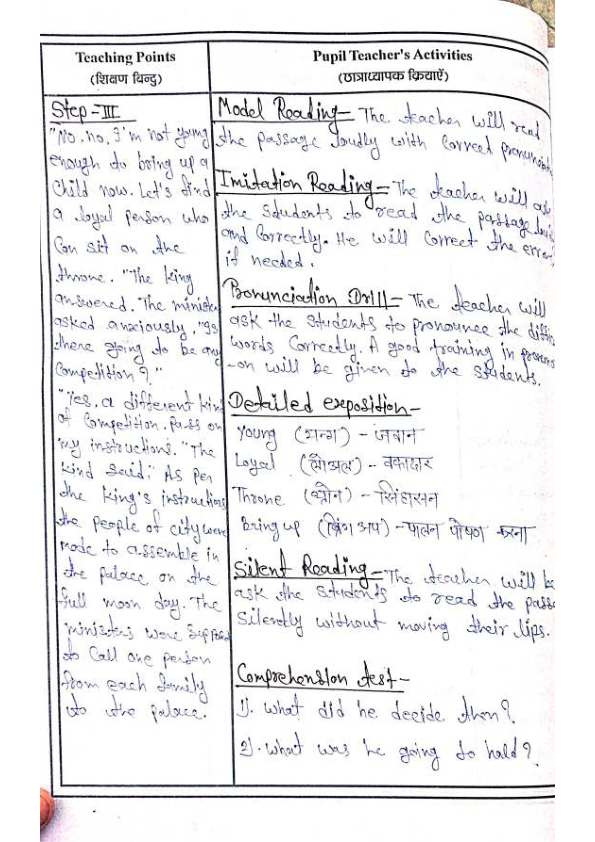 Teaching Points
(शिक्षण बिन्दु)
Step-III
"No. no, I'm not young
enough to bring up a
Child now. Let's find
a loyal person who
Can sit on the
throne. "The king
answered. The minister
asked anxiously, "Is
there going to be any
Competition?"
"Yes, a different kind
of Competition. Pass on
my instructions. "The
kind Said." As per
the king's instructions
the people of city were
made to assemble in
the palace on the
full moon day. The
ministers were Supposed
to Call one person
from each family
to the palace.
Pupil Teacher's Activities
(छात्राध्यापक क्रियाऐं)
Model Reading- The teacher will read
the passage loudly with Correct
Imitation Reading- The teacher will ask
the Students to read the passage
and Correctly. He will Correct the
if needed.
Pronunciation Drill- The teacher will
ask the Students to pronounce the
words Correctly. A good training in
-on will be given to the Students.
Detailed exposition-
Young - जवान
Loyal - वफादार
Throne (थ्रोन) - सिंहासन
Bring up (ब्रिंग अप) - पालन पोषण करना
Silent Reading- The teacher will be
ask the Students to read the
Silently without moving their lips.
Comprehension test-
1). What did he decide then?
2). What was he going to hald?